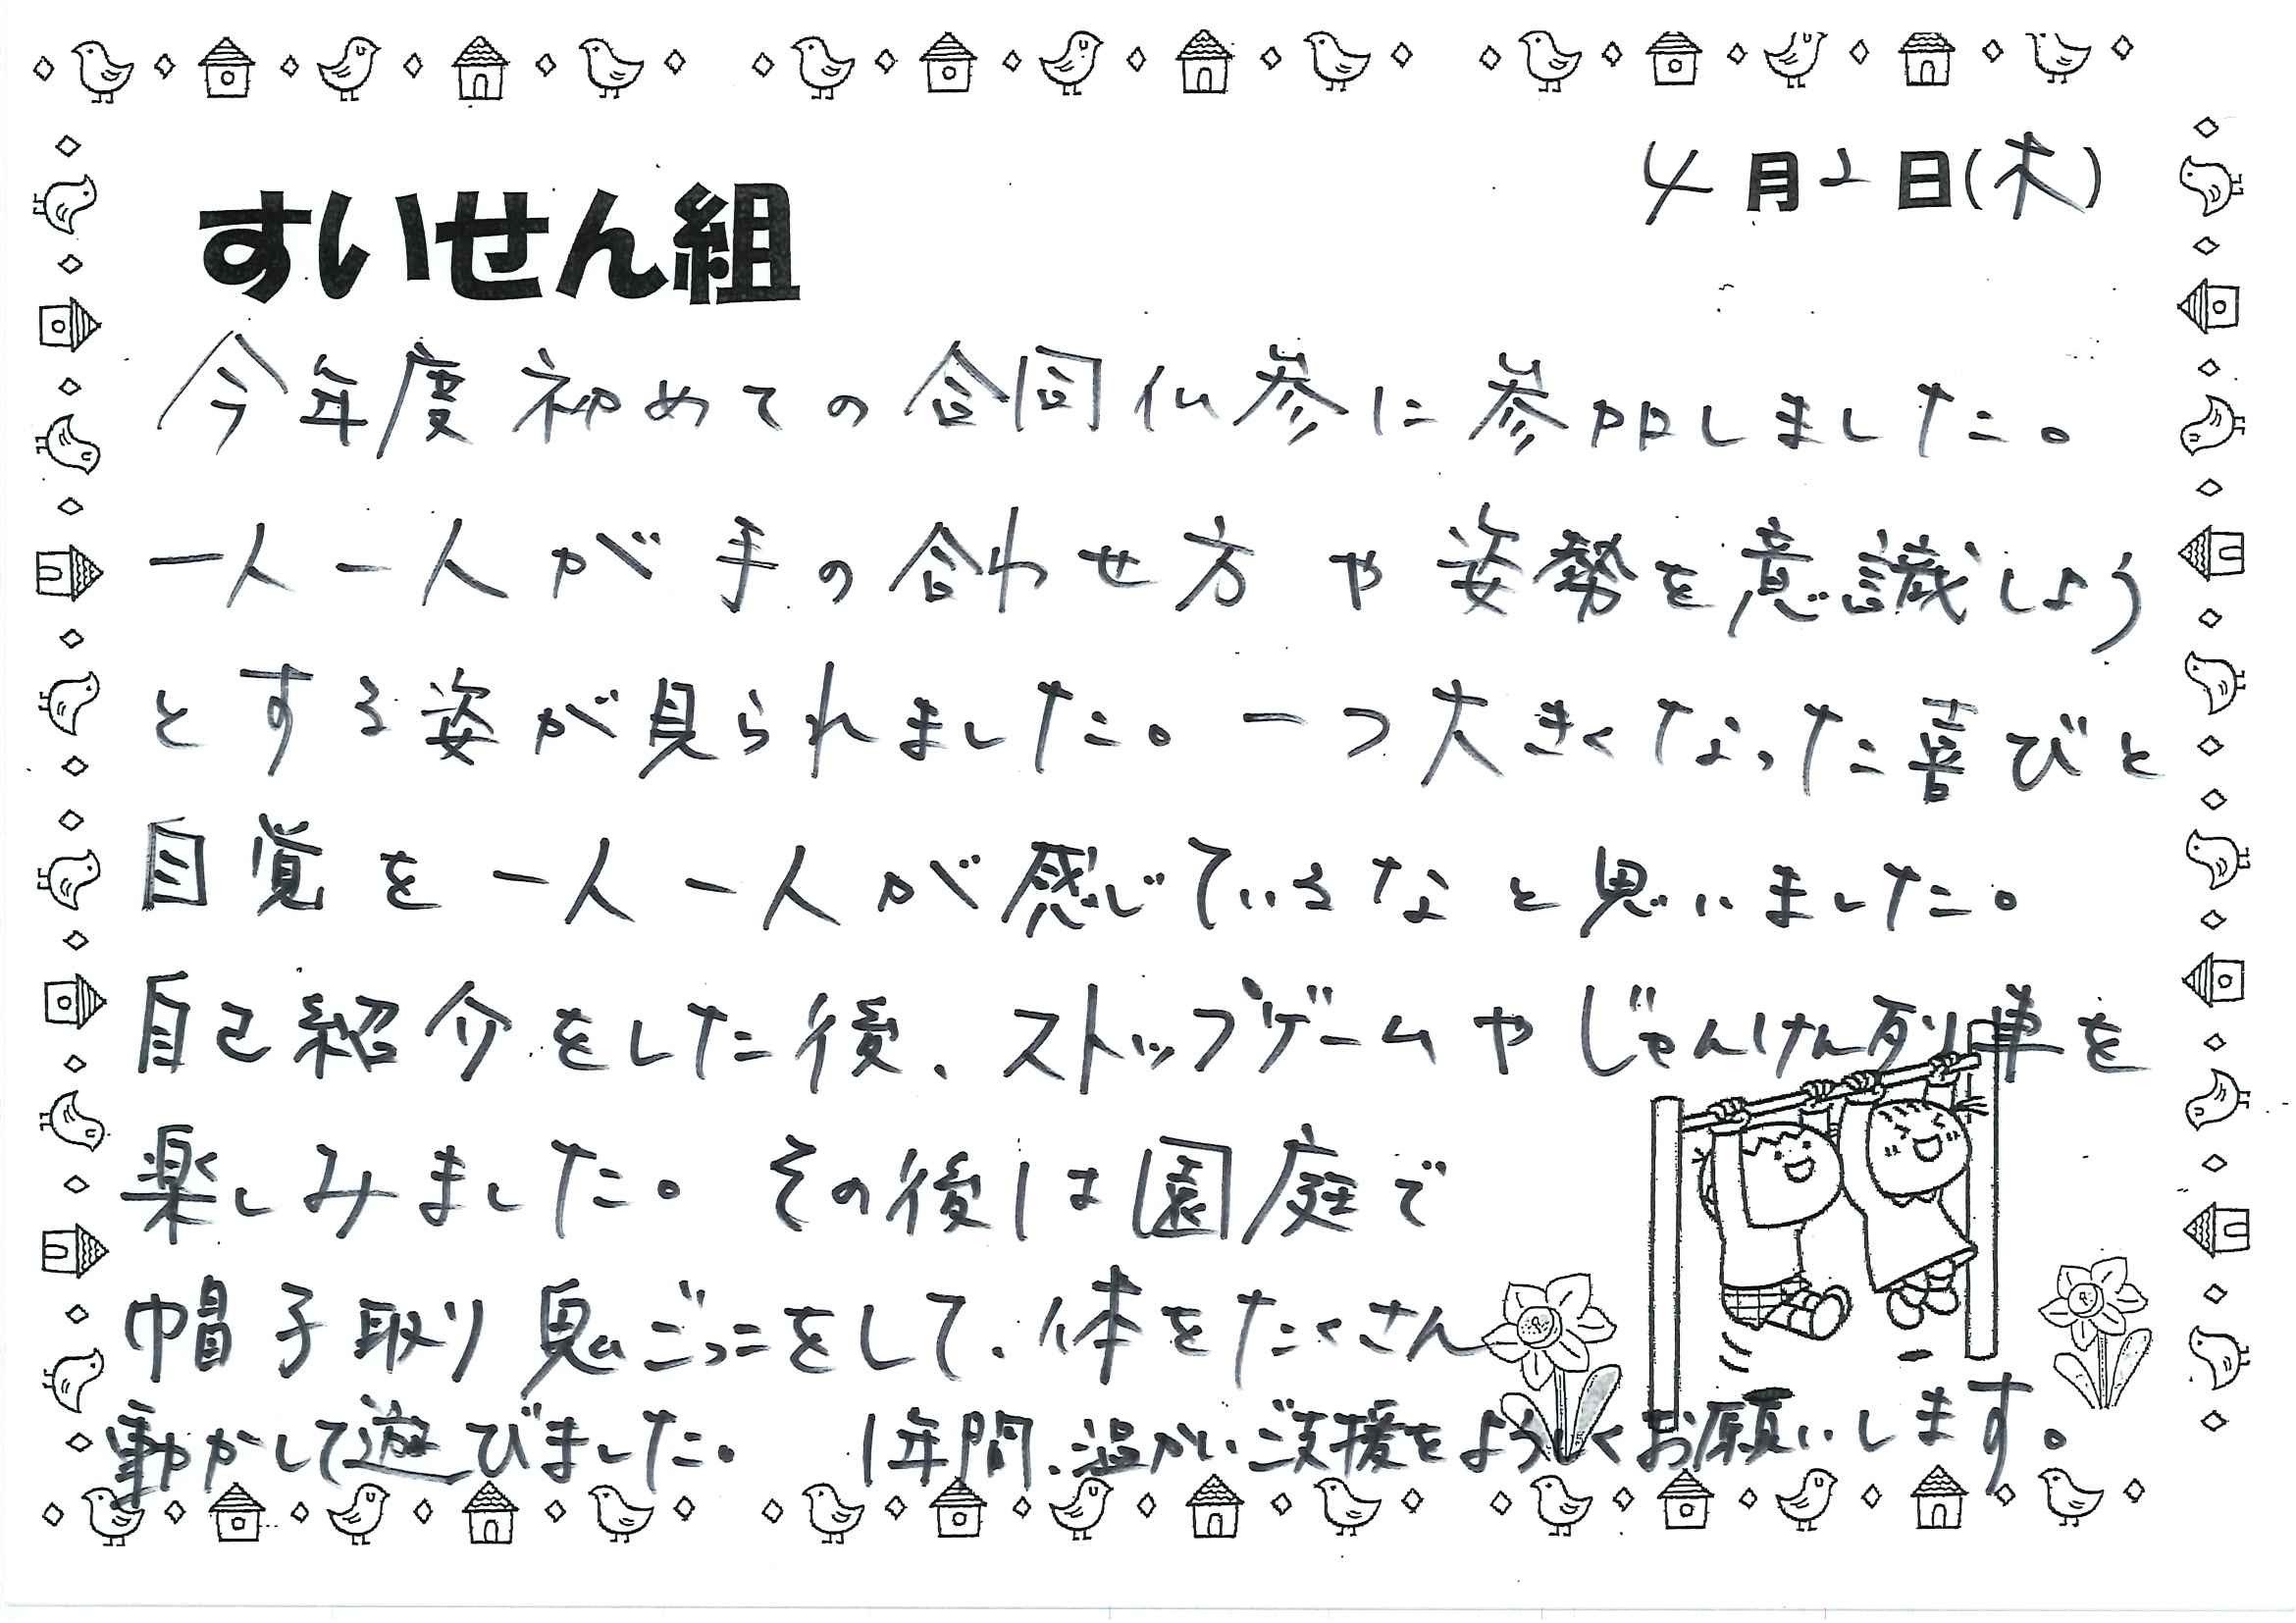 4月2日(木)
すいせん組
今年度初めての合同仏参に参加しました。
一人一人が手の合わせ方や姿勢を意識しよう
とする姿が見られました。一つ大きくなった喜びと
自覚を一人一人が感じているなと思いました。
自己紹介をした後、ストップゲームやじゃんけん列車を
楽しみました。その後は園庭で
帽子取り鬼ごっこをして、体をたくさん
動かして遊びました。 1年間、温かいご支援をよろしくお願いします。